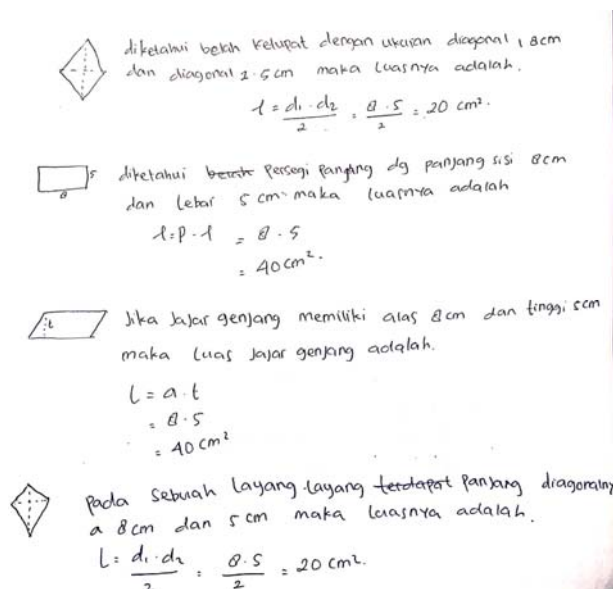 diketahui belah ketupat dengan ukuran diagonal 1 8cm
dan diagonal 2 5 cm maka luasnya adalah.
l = d₁ . d₂ / 2 = 8 . 5 / 2 = 20 cm².
5
8
diketahui persegi panjang dg panjang sisi 8cm
dan lebar 5 cm maka luasnya adalah
l = p . l = 8 . 5
= 40 cm².
t
Jika Jajar genjang memiliki alas 8cm dan tinggi 5cm
maka luas Jajar genjang adalah.
L = a . t
= 8 . 5
= 40 cm²
Pada sebuah layang-layang terdapat panjang diagonalny
a 8cm dan 5 cm maka luasnya adalah.
L = d₁ . d₂ / 2 = 8 . 5 / 2 = 20 cm².